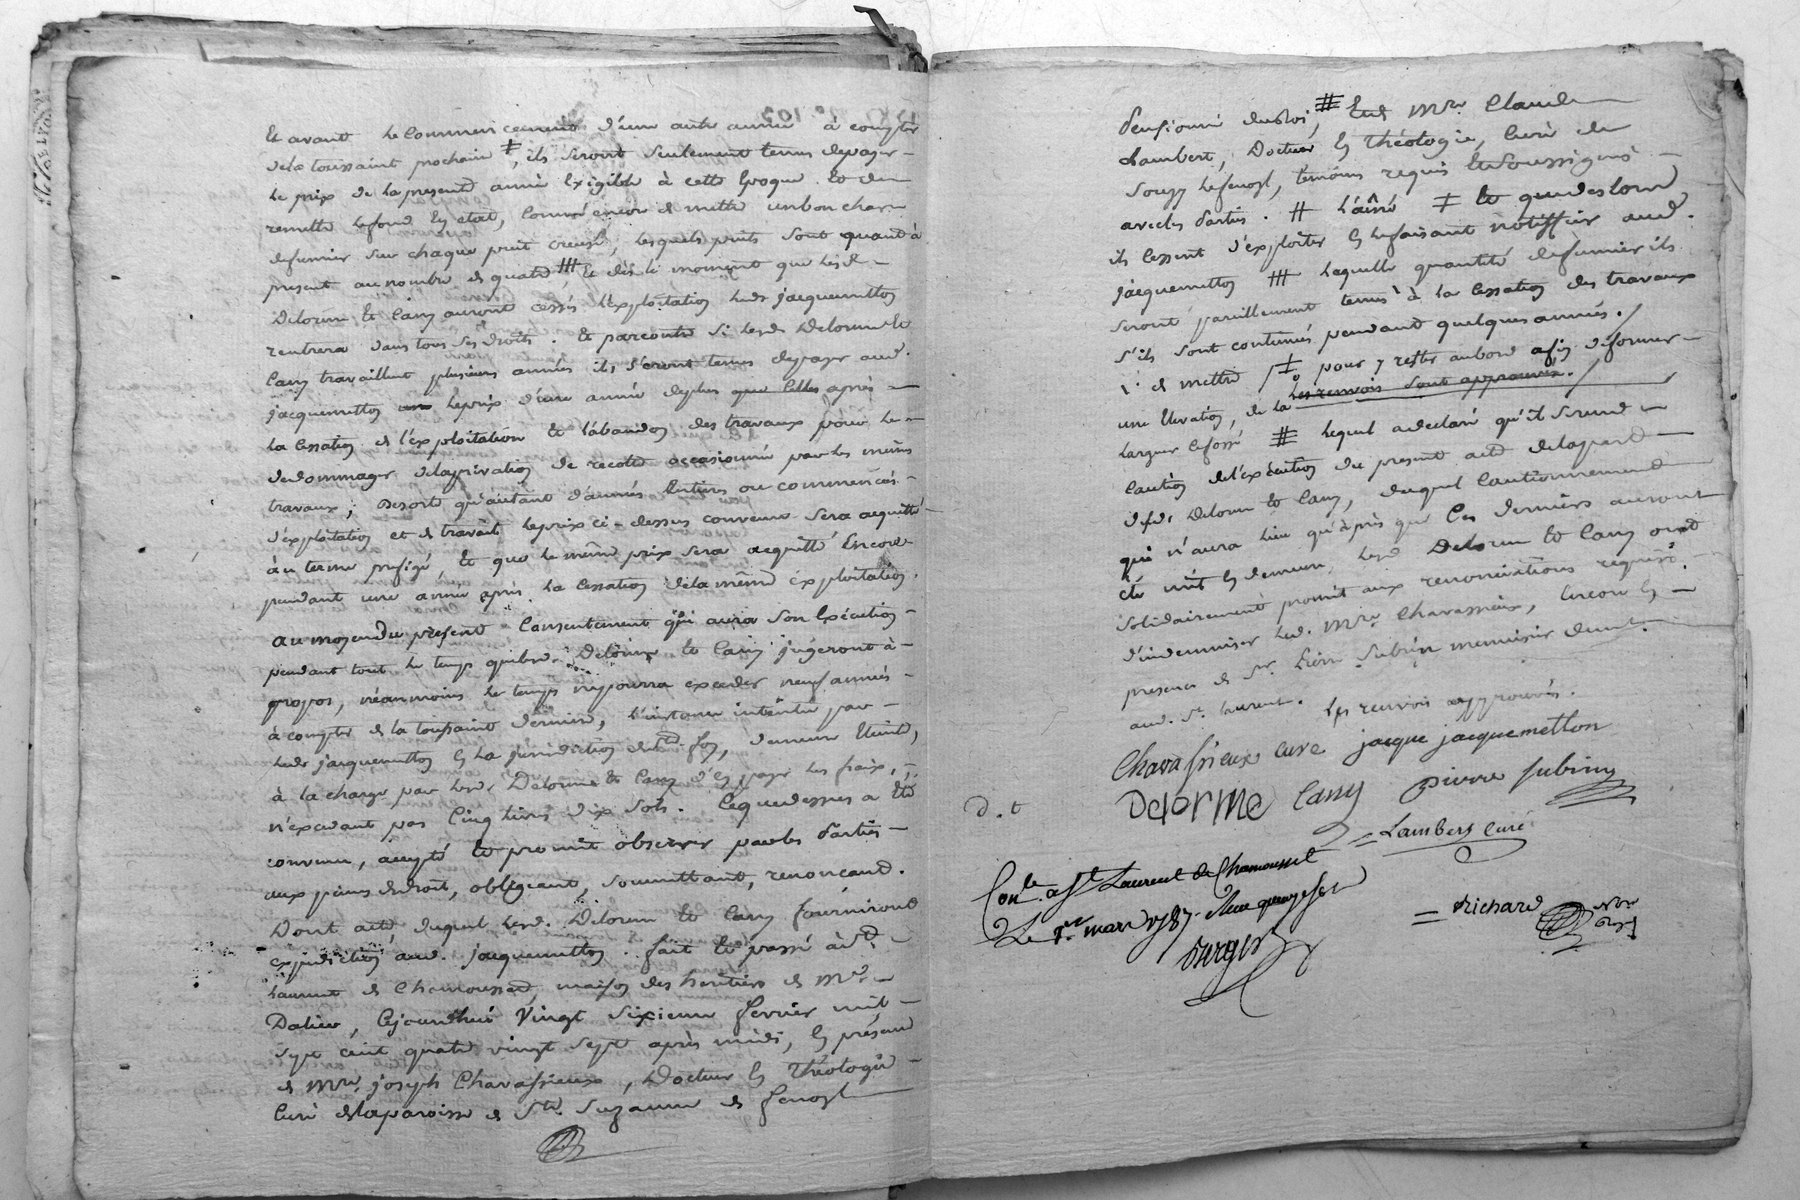 Et avant le Commencement d'une autre année à compter
dela toussaint prochain ‡, ils seront seulement tenus depayer
le prix de la presente année Exigible à cette Epoque. Et de
remettre lefond En état, Comme encor de mettre un bon char
defumier sur chaque puit creusé, lesquels puits sont quant à
present au nombre de quatre, ⧻ Et dès le moment que lesd.
Delorme Et Cany auront cessés l'exploitation led. jacquemetton
rentrera dans tous ses droits. Et parcontre si lesd. Delorme Et
Cany travaillent plusieurs années ils seront tenus depayer aud.
jacquemetton le prix d'une année deplus que Celles après
la Cessation de l'exploitation Et l'abandon des travaux pour le
dedommager delaprivation de recolte occasionnée par les mêmes
travaux; Desorte qu'autant d'années Entieres ou commencées
d'exploitation et de travail leprix ci-dessus convenu sera acquitté
au terme prefixé, Et que le même prix sera acquitté Encore
pendant une année après la Cessation dela même exploitation.
au moyen du present Consentement qui aura son Exécution
pendant tout le temps que lesd. Delorme Et Cany jugeront à
propos, néanmoins le temps ne pourra exceder neuf années
à compter de la toussaint derniere, l'instance intentée par
led. jacquemetton En la jurisdiction de Ste. foy, demeure Eteinte,
à la charge par lesd. Delorme Et Cany d'En payer les fraix,
n'excedant pas Cinq livres dix sols. Ceque dessus a Eté
convenu, accepté Et promit observer par les Parties
aux peines de droit, obligeant, soumettant, renonceant.
Dont acte, duquel lesd. Delorme Et Cany fourniront
expedition aud. jacquemetton. fait Et passé à St.
Laurent de Chamousset, maison des heritiers de Mre.
Dalier, Cejourdhui Vingt sixieme fevrier mil
sept cent quatre vingt sept après midi, En présence
de Mre. joseph Chavassieux, Docteur En Théologie
Curé delaparoisse de Ste. Suzanne de
Pensionné du Roi, # Et de Mre. Claude
Lambert, Docteur En Théologie, Curé de
Souzy, témoins requis Et soussignés
avec les Parties. # l'aîné ‡ Et que des lors
ils Cessent d'exploiter En le faisant notiffier aud.
jacquemetton ⧻ laquelle quantité defumier ils
seront pareillement tenus à la Cessation des travaux
s'ils sont continués pendant quelques années. /
de mettre /‡ pour y rester aubord afin deformer
une Elevation, de la les renvois sont approuvés. /
largeur lefossé # lequel a declaré qu'il se rend
Caution de l'exécution du present acte delapart
desd. Delorme Et Cany, duquel Cautionnement
qui n'aura lieu qu'après que Ces derniers auront
été mit En demeure, lesd. Delorme Et Cany ont
solidairement promit aux renonciations requises
d'indemniser led. Mre. Chavassieux, Encore En
presence de Sr. Pierre Subrin menuisier demt.
aud. St. Laurent. les renvois approuvés.
Chavassieux curé jacque jacquemetton
Delorme Cany pierre subrin
D. t
= Lambert curé
Conlé. a St. Laurent de Chamousset
Le 1er. mars 1787. Recu quinze sols
Durget
= Richard Nre